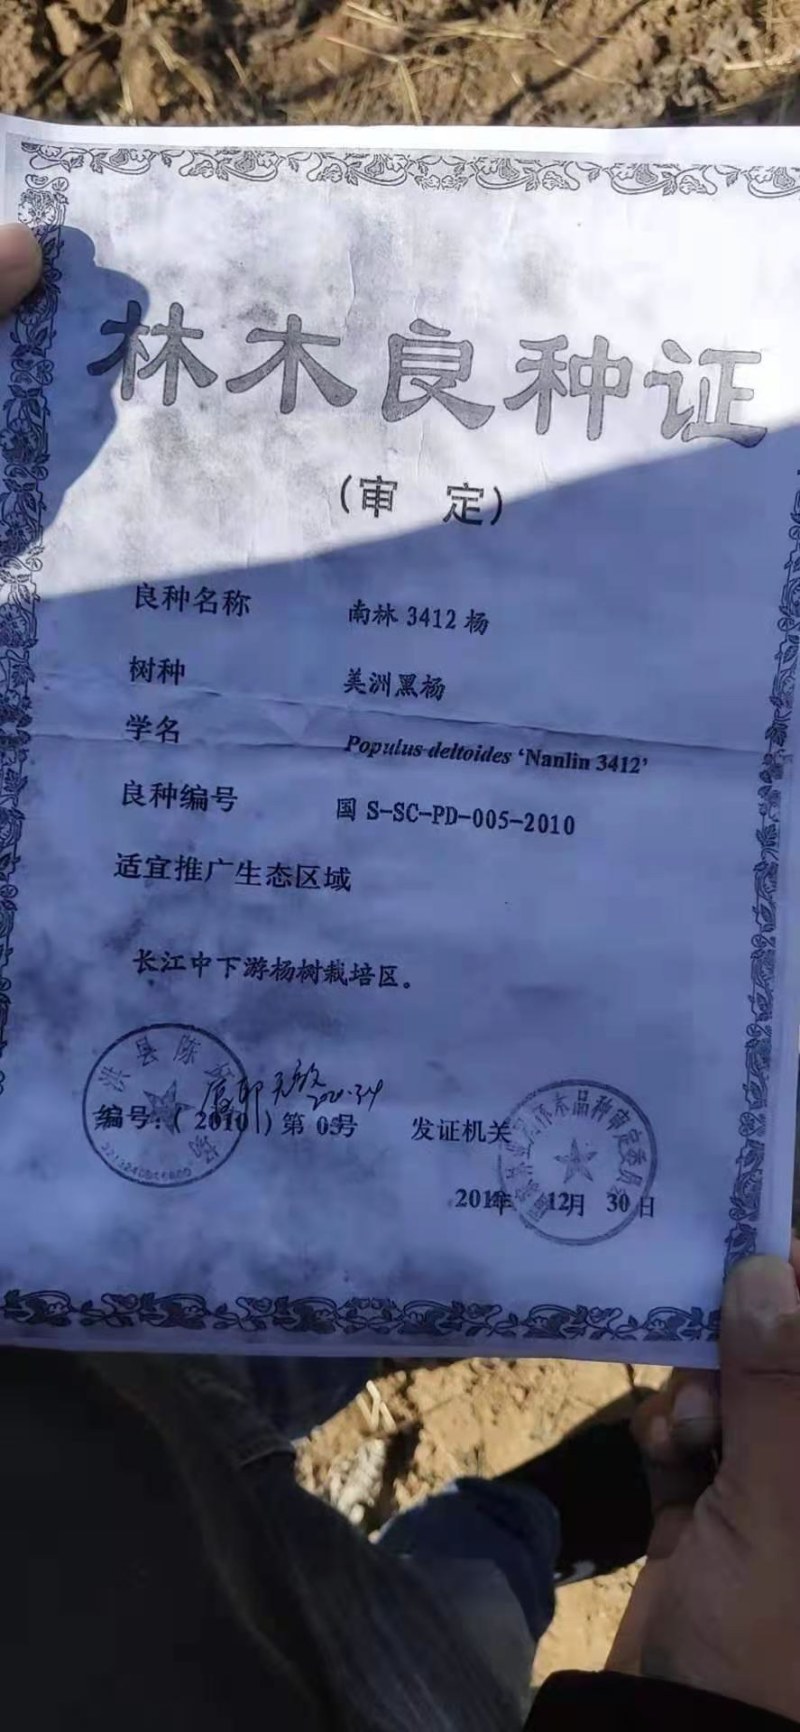 林木良种证
（审 定）
良种名称 南林 3412 杨
树种 美洲黑杨
学名 Populus deltoides ‘Nanlin 3412’
良种编号 国 S-SC-PD-005-2010
适宜推广生态区域
长江中下游杨树栽培区。
编号：（ 2010 ）第 05号 发证机关
12月 30日